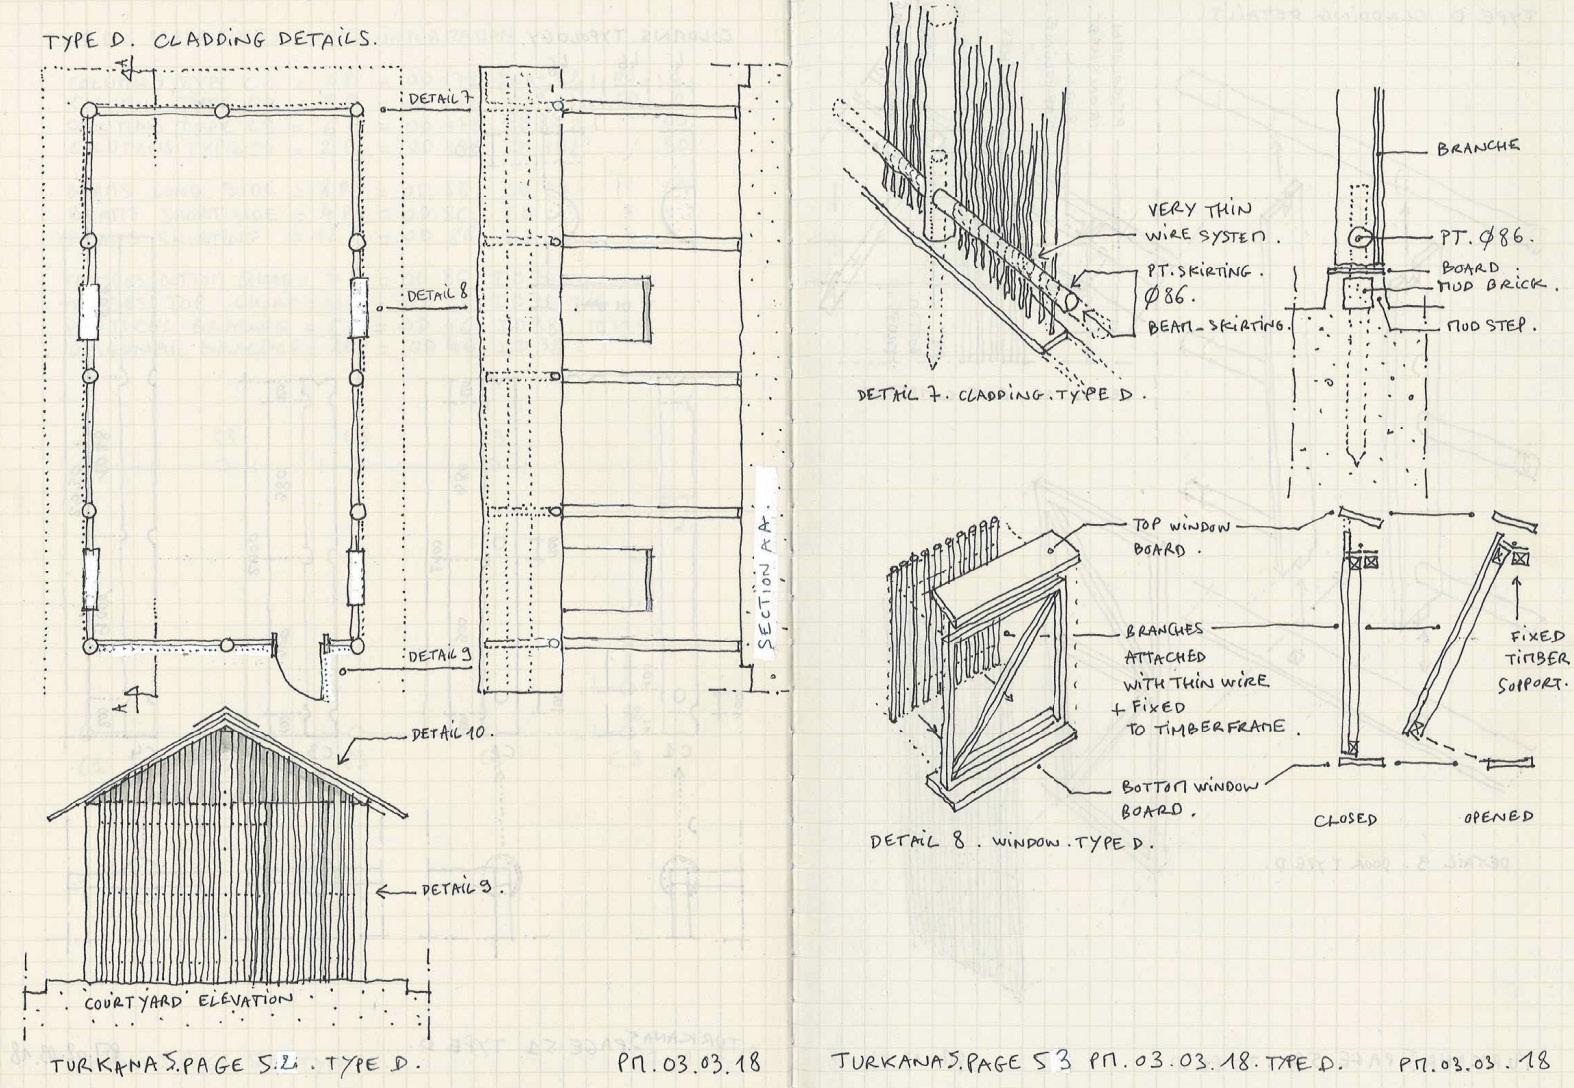 TYPE D. CLADDING DETAILS.
A
DETAIL 7
DETAIL 8
SECTION AA.
DETAIL 9
A
DETAIL 10.
DETAIL 9.
COURTYARD ELEVATION
TURKANA 5. PAGE 52. TYPE D.
PM. 03.03.18
BRANCHE
VERY THIN
WIRE SYSTEM.
PT. Ø86.
PT. SKIRTING.
Ø86.
BEAM-SKIRTING.
BOARD
MUD BRICK.
MUD STEP.
DETAIL 7. CLADDING. TYPE D.
TOP WINDOW
BOARD.
BRANCHES
ATTACHED
WITH THIN WIRE
+ FIXED
TO TIMBERFRAME.
FIXED
TIMBER
SUPPORT.
BOTTOM WINDOW
BOARD.
CLOSED
OPENED
DETAIL 8. WINDOW. TYPE D.
TURKANA 5. PAGE 53 PM. 03.03.18. TYPE D.
PM. 03.03.18